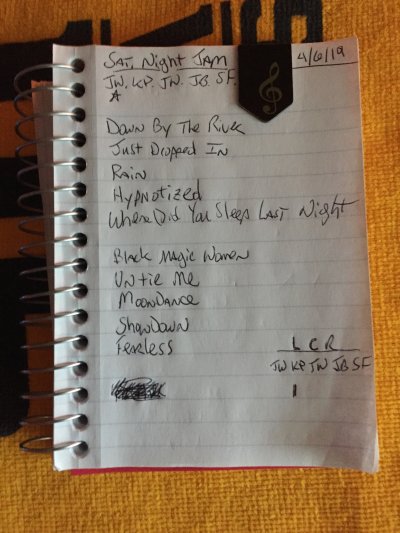 SAT, Night JAM
4/6/19
JW. KP. JW. JB. SF.
A
Down By The River
Just Dropped In
Rain
Hypnotized
Where Did You Sleep Last Night
Black Magic Women
Untie Me
MOONDANCE
ShowDown
Fearless
L C R
JW KP JW JB SF
1